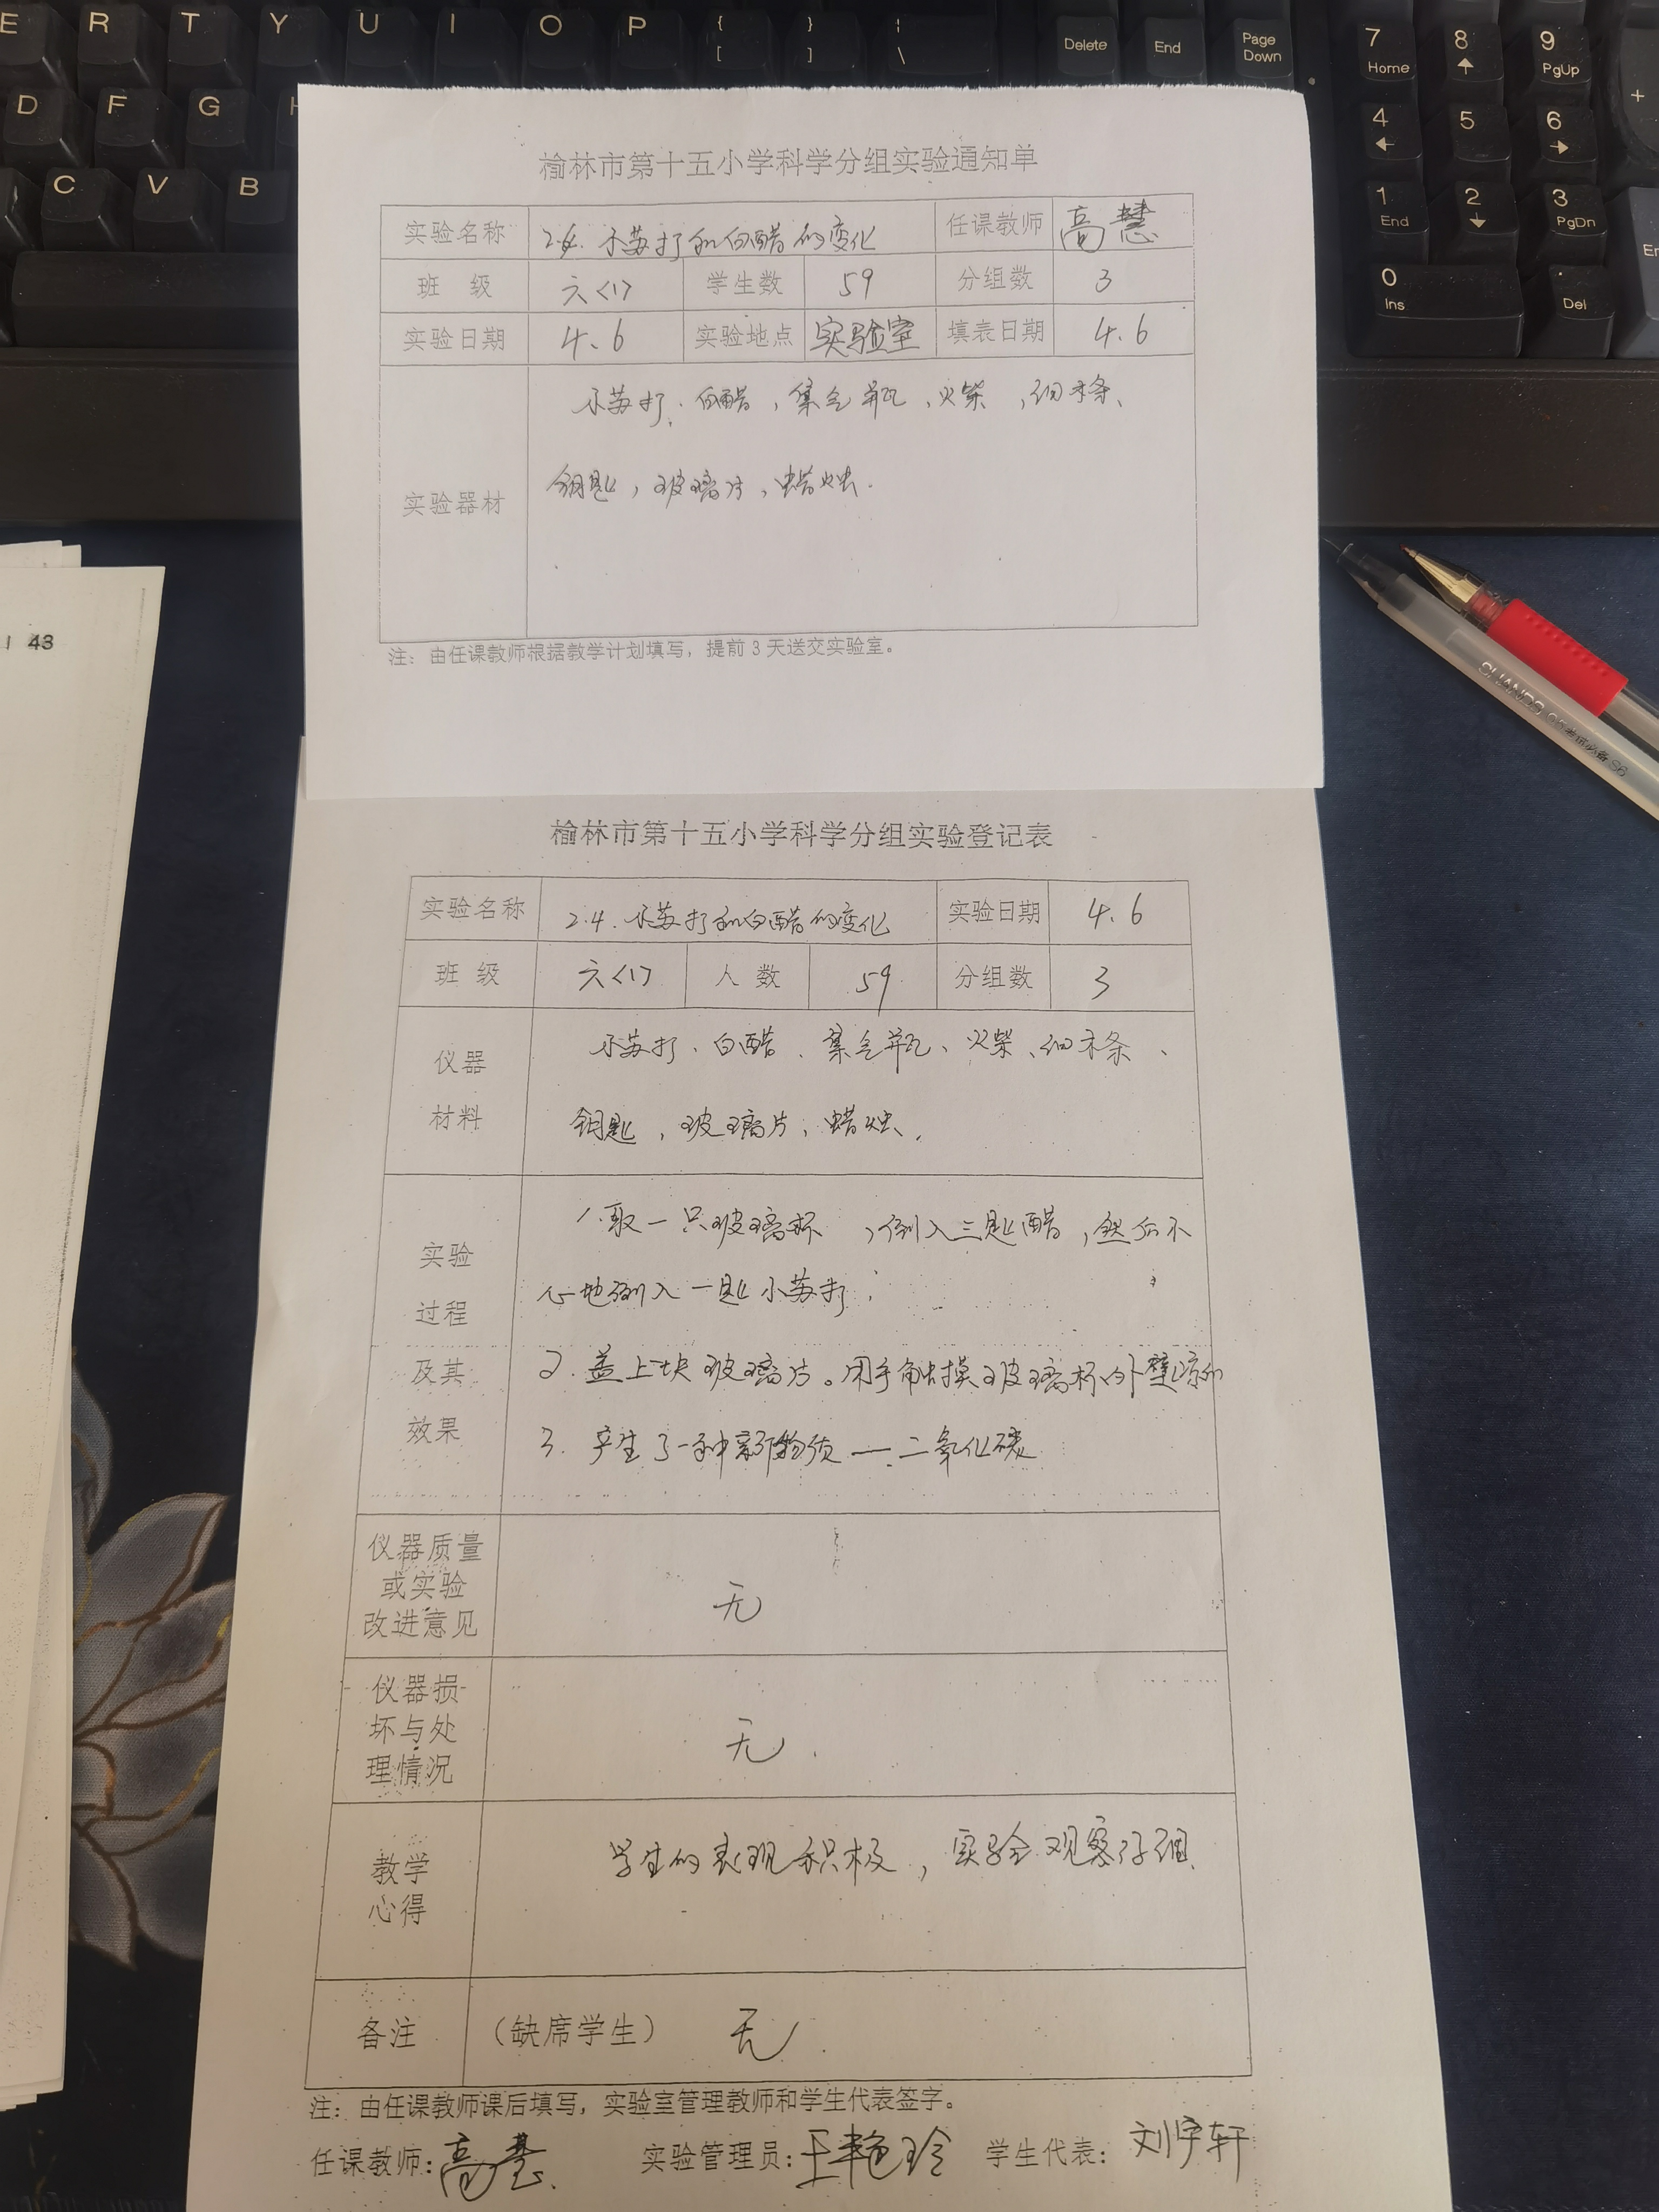 E R T Y U I O P { [ } ] | \ Delete End Page Down 7 Home 8 9 PgUp
D F G 4 5 6 +
C V B 1 End 2 3 PgDn
0 Ins Del
43
榆林市第十五小学科学分组实验通知单
实验名称 2.4. 小苏打和白醋的变化 任课教师 高慧
班 级 六<1> 学生数 59 分组数 3
实验日期 4.6 实验地点 实验室 填表日期 4.6
小苏打、白醋,集气瓶、火柴,细木条、
实验器材 钥匙,玻璃片、蜡烛.
注: 由任课教师根据教学计划填写,提前 3 天送交实验室。
榆林市第十五小学科学分组实验登记表
实验名称 2.4. 小苏打和白醋的变化 实验日期 4.6
班 级 六<1> 人 数 59 分组数 3
仪器 小苏打、白醋、集气瓶、火柴、细木条、
材料 钥匙,玻璃片、蜡烛.
实验 1.取一只玻璃杯,倒入三匙醋,然后小
过程 心地倒入一匙小苏打
及其 2. 盖上块玻璃片。用手触摸玻璃杯外壁
效果 3. 产生了一种新物质——二氧化碳
仪器质量
或实验 无
改进意见
仪器损
坏与处 无
理情况
教学 学生的表现积极,实验观察仔细
心得
各注 (缺席学生) 无
注: 由任课教师课后填写,实验室管理教师和学生代表签字。
任课教师: 高慧 实验管理员: 王艳玲 学生代表: 刘宇轩